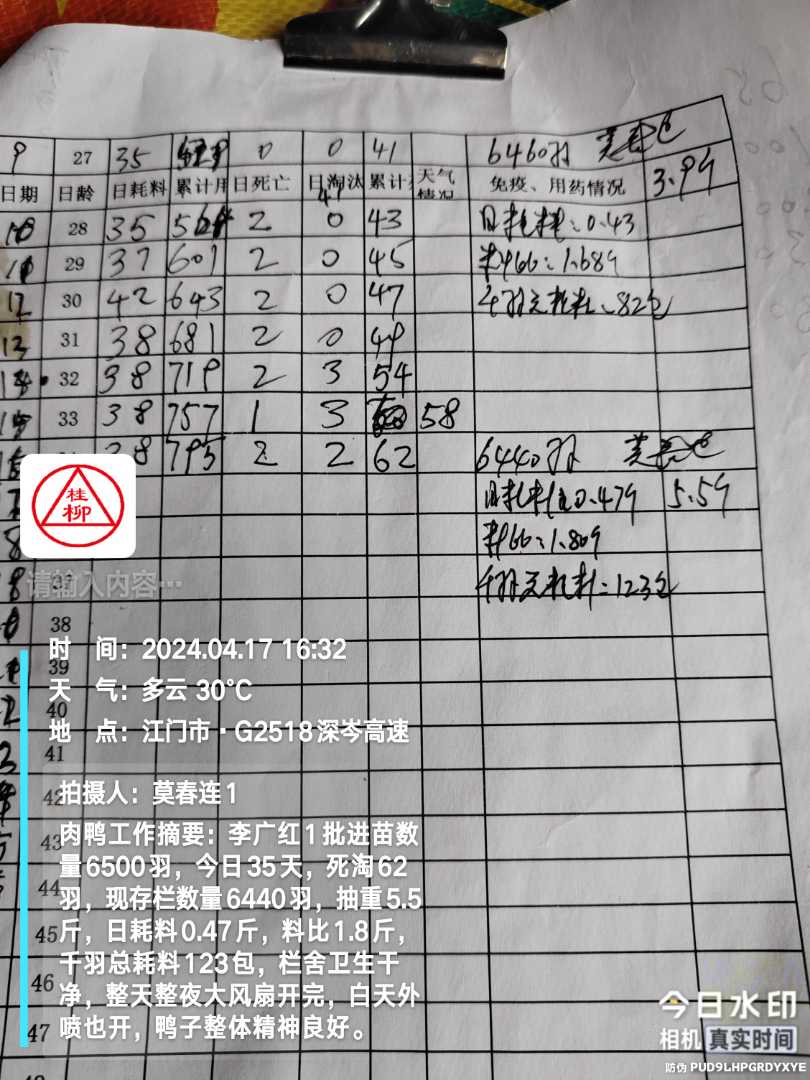 9 27 35 0 0 41 6460羽 莫春连
日期 日龄 日耗料 累计用 日死亡 日淘汰 累计 天气情况 免疫、用药情况 3.9斤
10 28 35 564 2 0 43 日耗料:0.43
11 29 37 601 2 0 45 料比:1.68斤
12 30 42 643 2 0 47 千羽总耗料:82包
13 31 38 681 2 0 49
14 32 38 719 2 3 54
15 33 38 757 1 3 58
38 795 2 2 62 6440羽 莫春连
日耗料:0.47斤 5.5斤
料比:1.80斤
千羽总耗料:123包
桂
柳
请输入内容…
37
38
时 间:2024.04.17 16:32
39
天 气:多云 30℃
40
地 点:江门市·G2518深岑高速
41
拍摄人:莫春连1
42
肉鸭工作摘要:李广红1批进苗数
43
量6500羽,今日35天,死淘62
44
羽,现存栏数量6440羽,抽重5.5
45
斤,日耗料0.47斤,料比1.8斤,
千羽总耗料123包,栏舍卫生干
46
净,整天整夜大风扇开完,白天外
47
喷也开,鸭子整体精神良好。
今日水印
相机 真实时间
防伪 PUD9LHPGRDYXYE